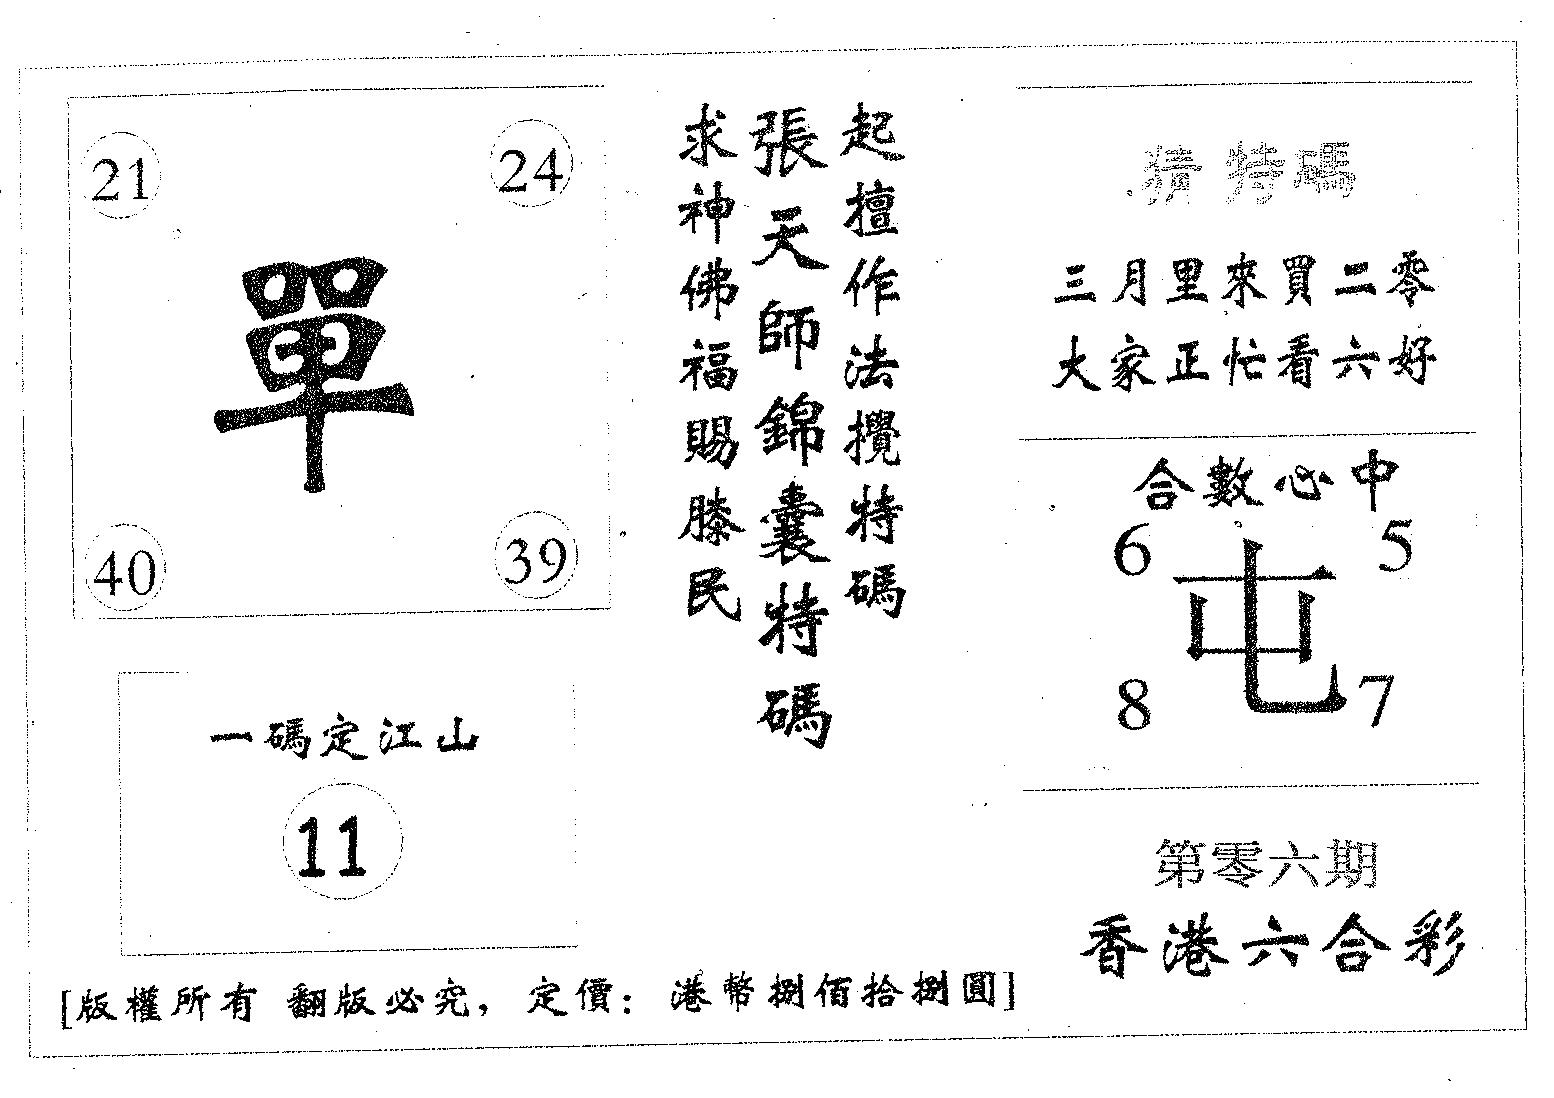 21
24
單
40
39
一碼定江山
11
起擅作法攪特碼
張天師錦囊特碼
求神佛福賜滕民
猜特碼
三月里來買二零
大家正忙看六好
合數必中
6
5
屯
8
7
第零六期
香港六合彩
[版權所有 翻版必究，定價：港幣捌佰拾捌圓]